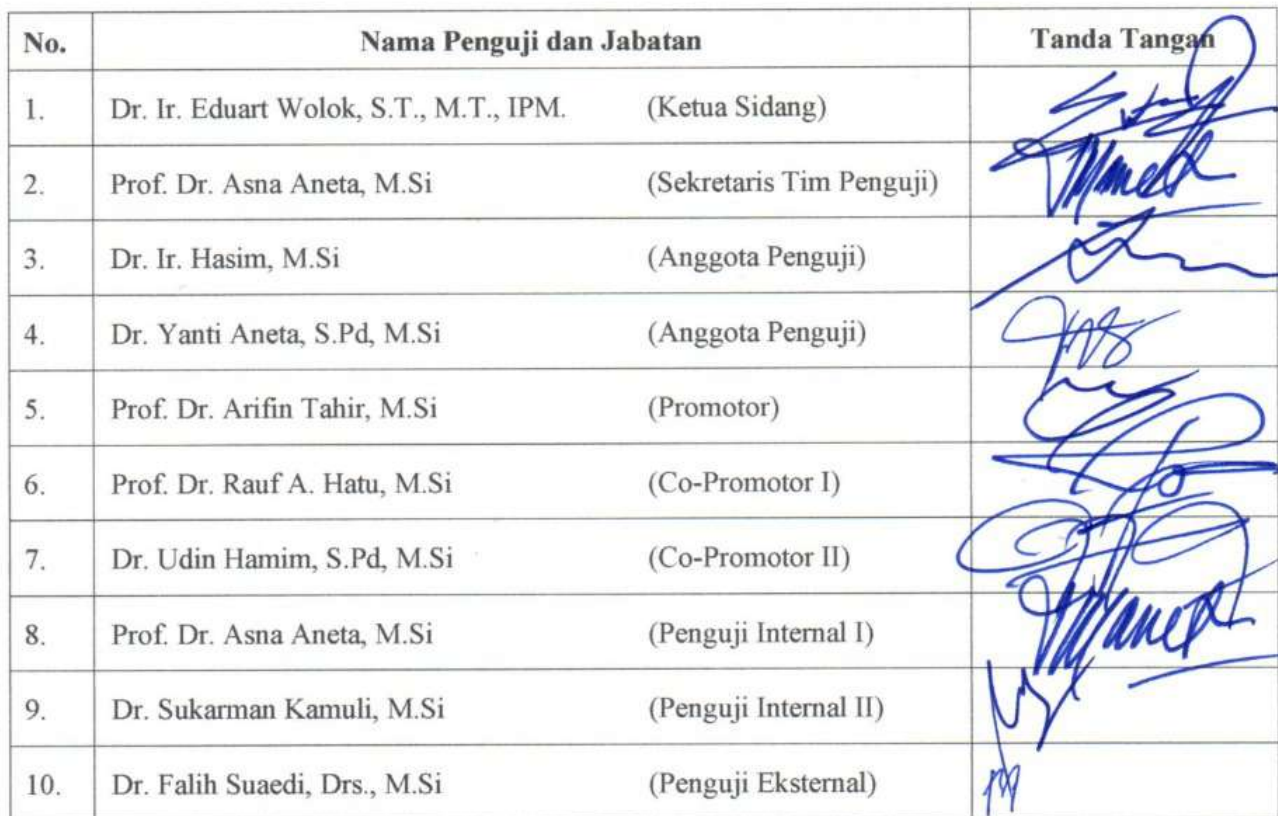 No. Nama Penguji dan Jabatan Tanda Tangan
1. Dr. Ir. Eduart Wolok, S.T., M.T., IPM. (Ketua Sidang)
2. Prof. Dr. Asna Aneta, M.Si (Sekretaris Tim Penguji)
3. Dr. Ir. Hasim, M.Si (Anggota Penguji)
4. Dr. Yanti Aneta, S.Pd, M.Si (Anggota Penguji)
5. Prof. Dr. Arifin Tahir, M.Si (Promotor)
6. Prof. Dr. Rauf A. Hatu, M.Si (Co-Promotor I)
7. Dr. Udin Hamim, S.Pd, M.Si (Co-Promotor II)
8. Prof. Dr. Asna Aneta, M.Si (Penguji Internal I)
9. Dr. Sukarman Kamuli, M.Si (Penguji Internal II)
10. Dr. Falih Suaedi, Drs., M.Si (Penguji Eksternal)